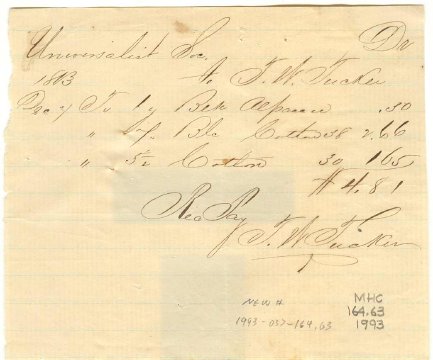 Universalist Soc. Dr
1863 to T. W. Tucker
Dec 7 To 1 y Blk Alpacca .30
" 7 Blc Cotton 38 2.66
" 5½ Cotton 30 1 65
$ 4.81
Rec Pay
T. W. Tucker
NEW #
1993-037-164.63
MHC
164.63
1993